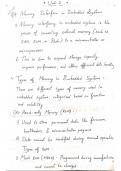 Unit 2
Q1 Memory Interface in Embedded System
Memory interfacing in embedded system is the
process of connecting external memory (such as
RAM, ROM, or Flash) to a microcontroller or
microprocessor.
This is done to expand storage capacity,
improve performance, and
Types of Memory in Embedded System.
There are different types of memory used in
embedded system, categorized based on function
and volatility.
(A) Read only Memory (ROM)
1 Used to store permanent data like firmware,
bootloader & microcontroller program
2 Data cannot be modified during normal operation
Types of ROM.
Mask ROM (MROM) - Programmed during manufacturing
and cannot be changed.